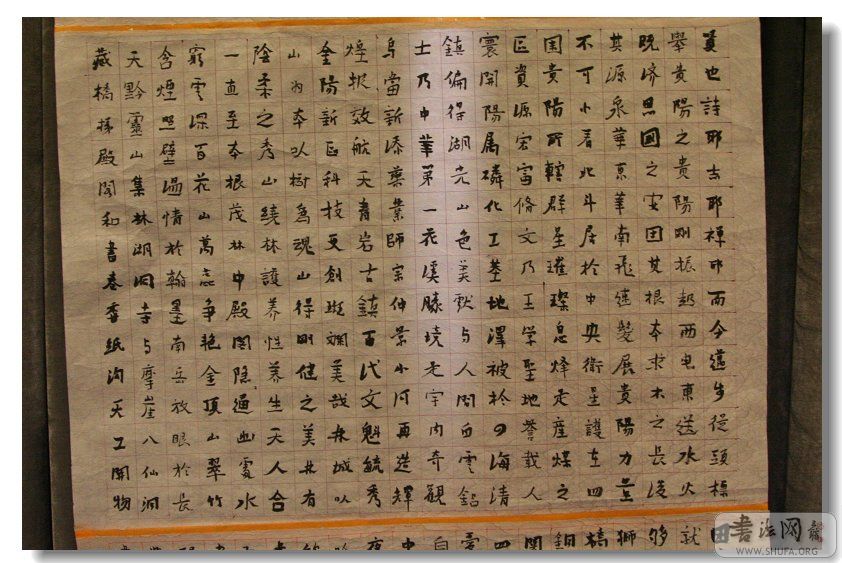 也詩耶吉耶禪耶而今邁步從頭標
舉貴陽之貴陽剛振起西电東送水火
既济思國之安固其根本求木之長浚
其源泉華京華南飛速發展貴陽力量
不可小看北斗居於中央衛星護在四
国貴陽所轄群星璀璨息烽走產煤之
區資源宏富修文乃王學聖地譽載人
寰開陽属磷化工基地澤被於四海清
鎮偏得湖光山色美默与人間白雲鋁
士乃中華第一花溪勝境是宇内奇觀
烏當新添藥業師宗仲景小河再造輝
煌报效航天青岩古鎮百代文魁毓秀
金陽新區科技更創斑斕美哉林城以
山為本以樹為魂山得剛健之美林有
陰柔之秀山繞林護養性養生天人合
一直至本根茂林中殿閣隐逼幽處水
窮雲深百花山萬蕊争艳金頂山翠竹
含煙照壁情於翰墨南岳放眼於長
天黔靈山集林湖洞寺与摩崖八仙洞
藏橋殿閣和書卷香紙沟天工開物
就
够
獅
橋
銅
開
四
自
中
夜
書法网
WWW.SHUFA.ORG